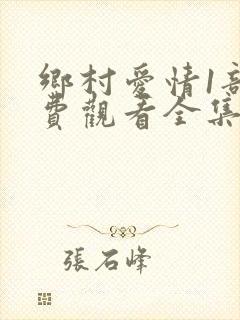 鄉村愛情1部
費觀看全集
張石峰